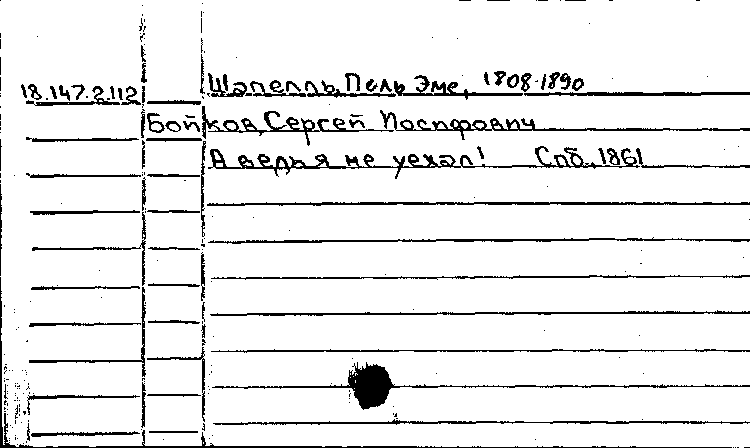 18.147.2.112 Шапелль, Поль Эме, 1808-1890
Бойков, Сергей Иосифович
А ведь я не уехал! Спб., 1861